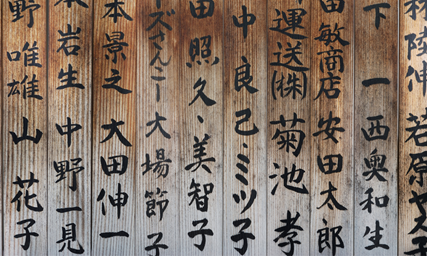 伸 若原ヤス子
下 一 西奥和生
田敏商店 安田太郎
運送(株) 菊池 孝
中良己・ミツ子
田照久・美智子
ズさんこー 大場節子
本景之 大田伸一
本岩生 中野一見
野唯雄 山 花子